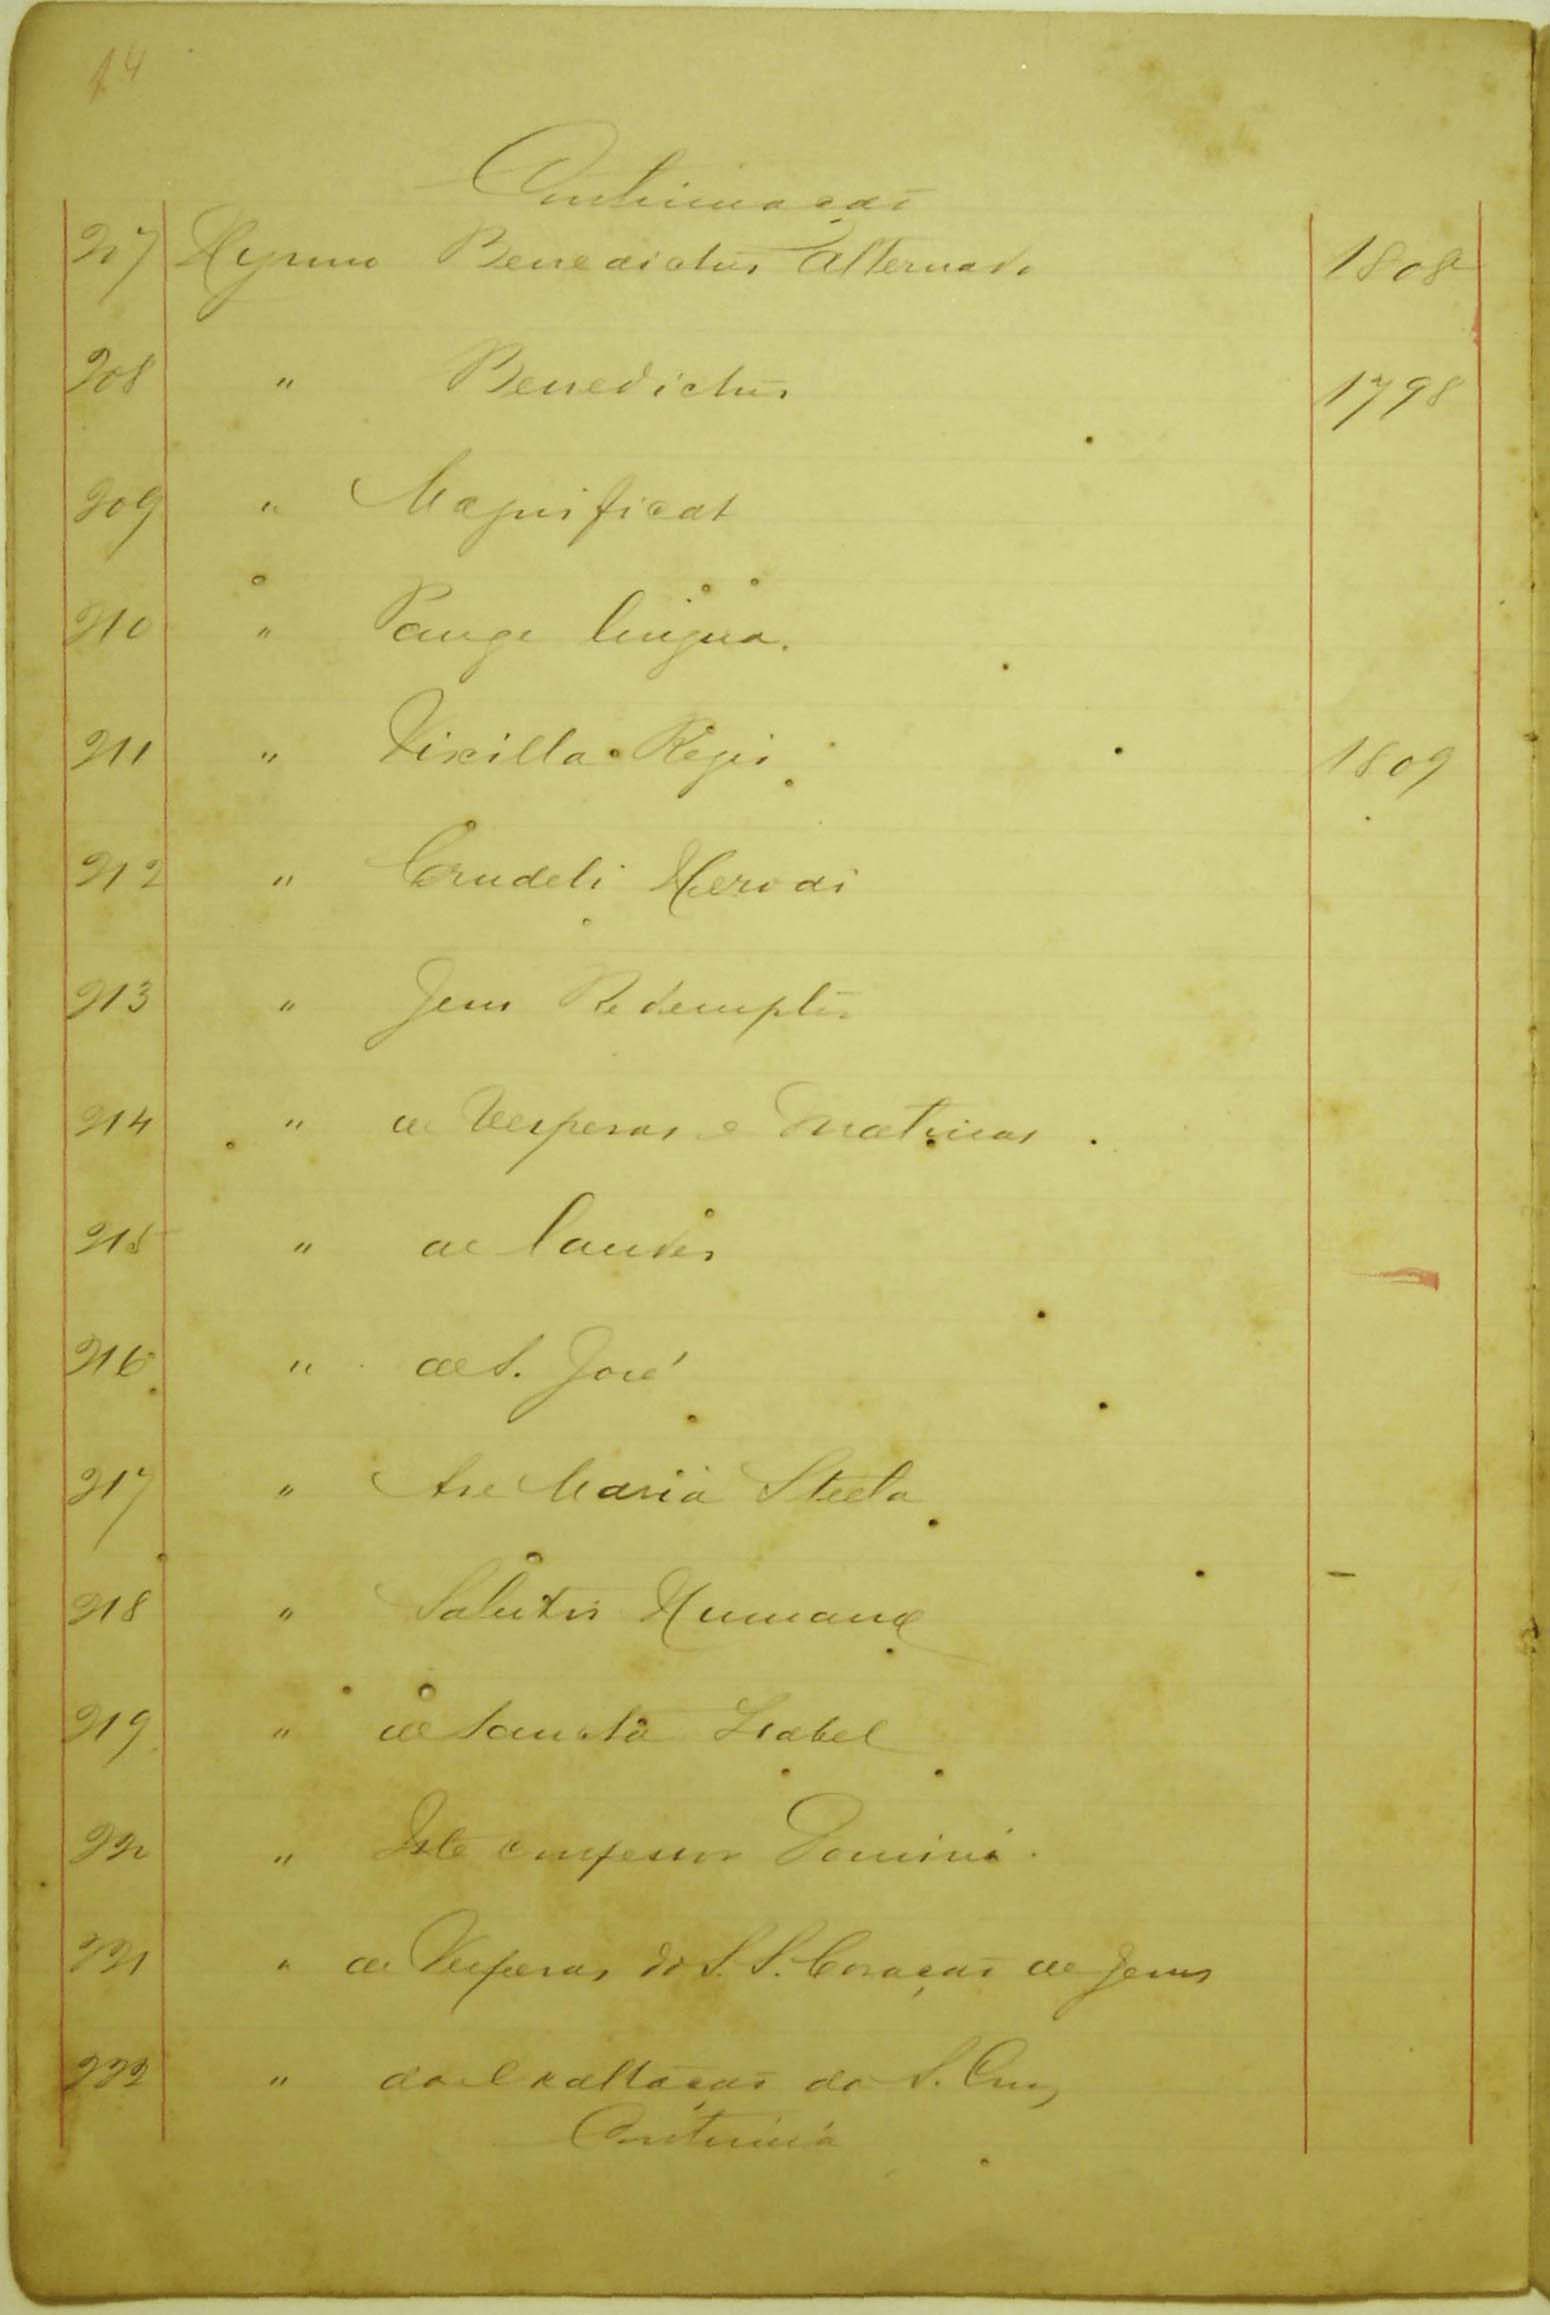 14
Continuação
207 Hymno Benedictus Alternado 1808
208 " Benedictus 1798
209 " Magnificat
210 " Pange lingua.
211 " Vixilla Regis 1809
212 " Crudeli Herodi
213 " Jesus Redemptor
214 " de Vesperas e Matinas
215 " de Laudes
216 " de S. José
217 " Ave Maria Stela
218 " Salutis Humanæ
219 " de Sancta Isabel
220 " Iste confessor Domini
221 " de Vesperas do S. S. Coração de Jesus
222 " da Exaltação da S. Cruz
Continúa